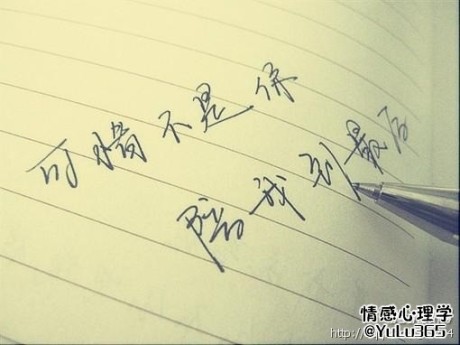 可惜不是你
陪我到最后
情感心理学
@YuLu365